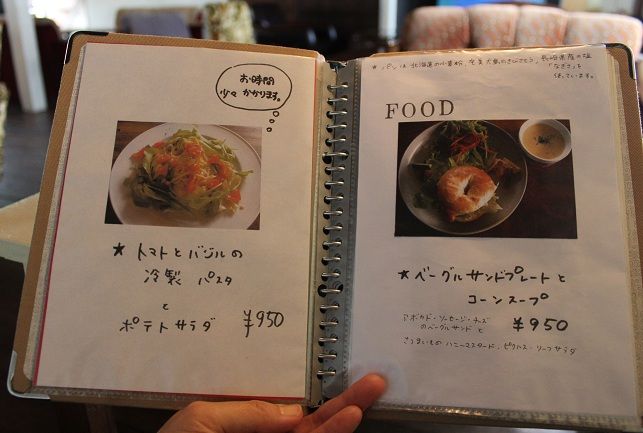 お時間
少々かかります。
★ トマトとバジルの
冷製 パスタ
と
ポテトサラダ ¥950
★ パンは北海道の小麦粉、奄美大島のきびざとう、長崎県産の塩
「なぎさ」を
使っています。
FOOD
★ ベーグルサンドプレートと
コーンスープ
¥950
アボカド・ソーセージ・チーズ
のベーグルサンドと
さつまいものハニーマスタード・ピクルス・リーフサラダ